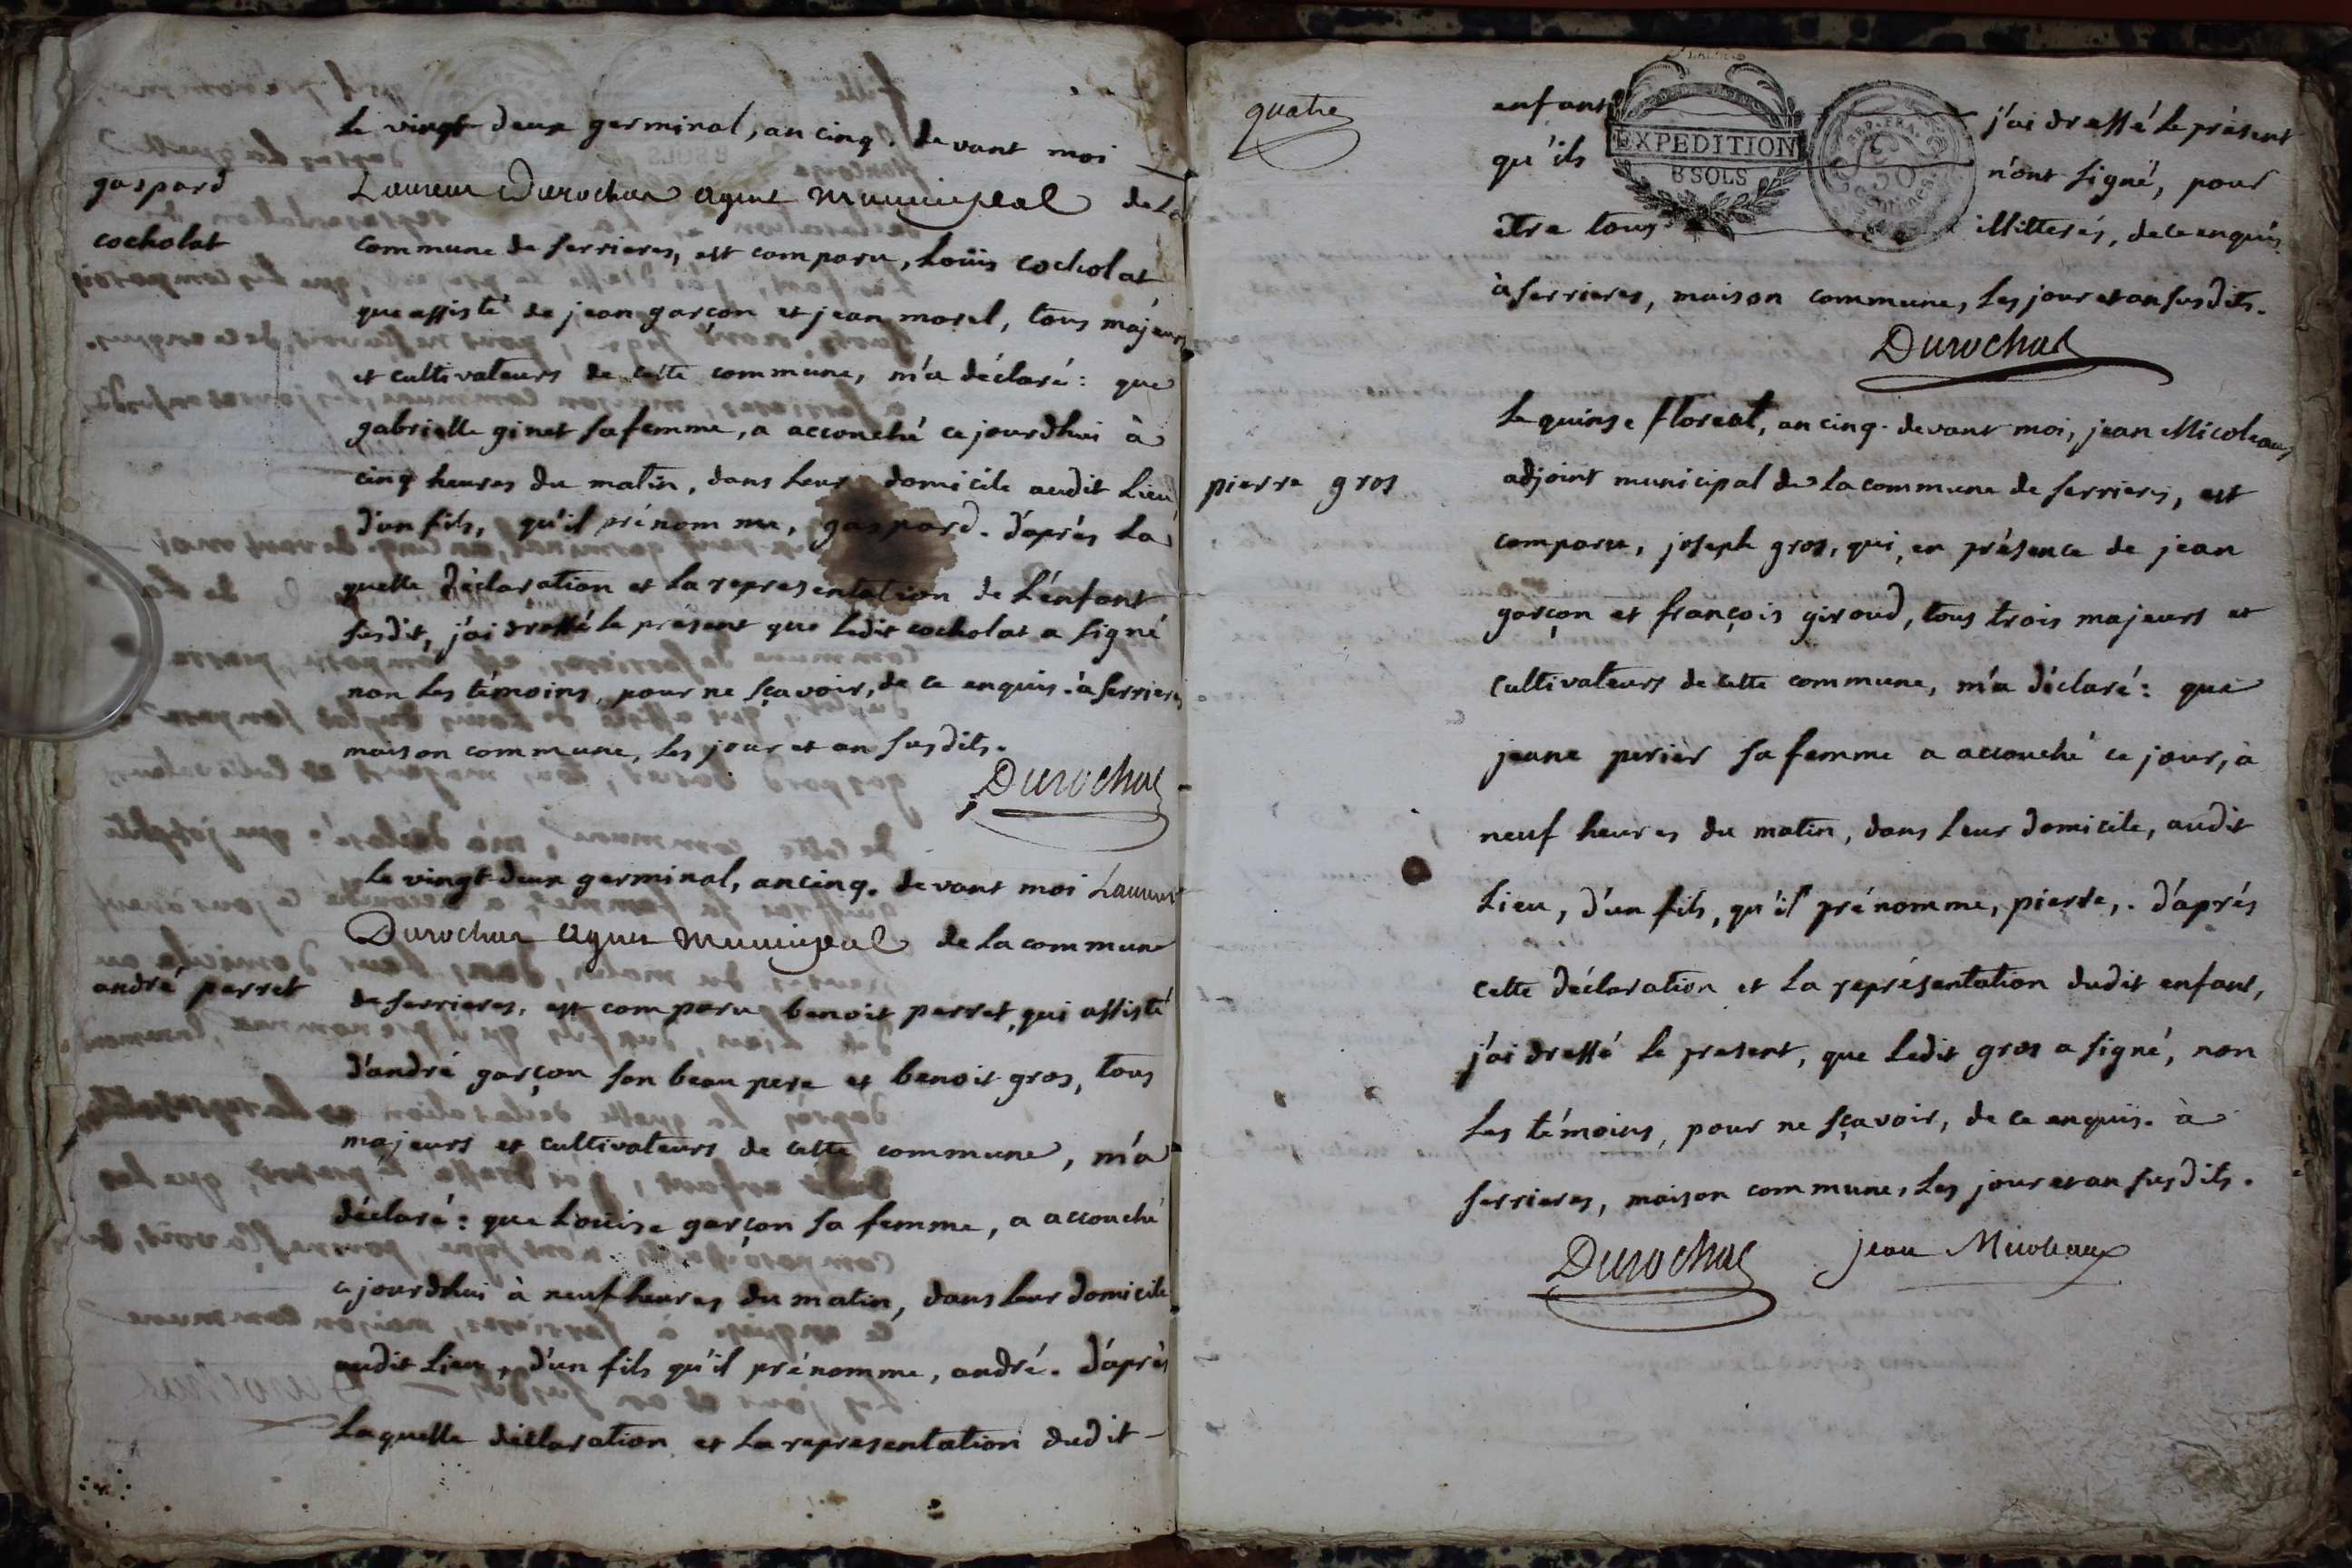 Le vingt deux germinal, an cinq. devant moi
gaspard
cocholat
Laurent Durochat agent Municipal de La
commune de ferrieres, est comparu, Loüis cocholat
que assisté de jean garçon et jean morel, tous majeurs
et cultivateurs de cette commune, m'a déclaré: que
gabrielle ginet sa femme, a accouché ce jourdhui à
cinq heures du matin, dans leur domicile audit Lieu
d'un fils, qu'il prénomme, gaspard. d'aprés La
quelle déclaration et La representation de L'enfant
susdit, j'ai dressé le présent que Ledit cocholat a signé
non Les témoins, pour ne sçavoir, de ce enquis. à ferrieres
maison commune, les jour et an susdits.
Durochat
Le vingt deux germinal, an cinq. devant moi Laurent
Durochat agent Municipal de La commune
andré perret
de ferrieres, est comparu benoit perret, qui assisté
d'andré garçon son beau pere et benoit gros, tous
majeurs et cultivateurs de cette commune, m'a
déclaré: que Loüise garçon sa femme, a accouché
ce jourdhui à neuf heures du matin, dans leur domicile
audit Lieu, d'un fils qu'il prénomme, andré. d'aprés
Laquelle déclaration et La representation dudit
quatre
enfant j'ai dressé Le présent
qu'ils n'ont signé, pour
être tous illitterés, de ce enquis
EXPEDITION
8 SOLS
REP. FRA.
50
à ferrieres, maison commune, Les jour et an susdits.
Durochat
Le quinse floreal, an cinq. devant moi, jean Micoleaux
pierre gros
adjoint municipal de La commune de ferrieres, est
comparu, joseph gros, qui, en présence de jean
garçon et françois giroud, tous trois majeurs et
cultivateurs de cette commune, m'a déclaré: que
jeane perier sa femme a accouché ce jour, à
neuf heures du matin, dans Leur domicile, audit
Lieu, d'un fils, qu'il prénomme, pierre,. d'aprés
cette déclaration et La représentation dudit enfant,
j'ai dressé Le present, que Ledit gros a signé, non
Les témoins, pour ne sçavoir, de ce enquis. à
ferrieres, maison commune, Les jour et an susdits.
Durochat jean Micoleaux